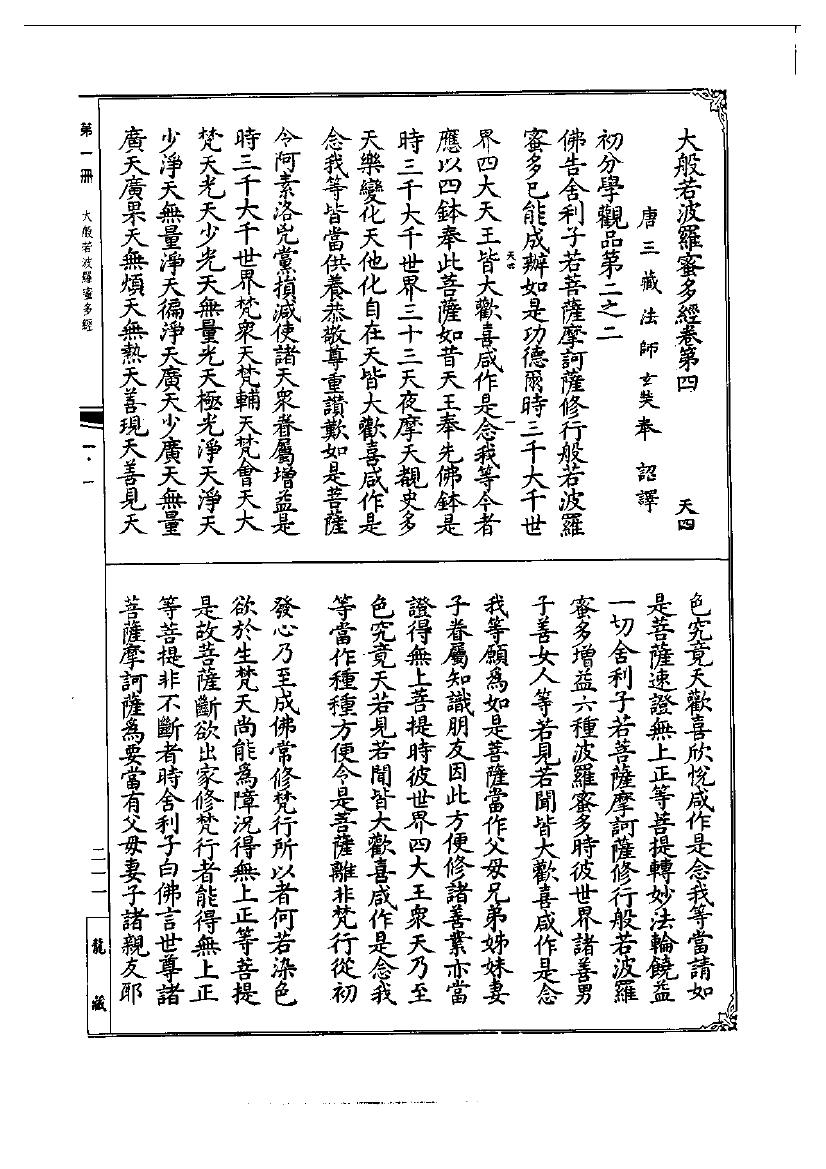 大般若波羅蜜多經卷第四
天四
唐三藏法師玄奘奉 詔譯
初分學觀品第二之二
佛告舍利子若菩薩摩訶薩修行般若波羅
蜜多已能成辦如是功德爾時三千大千世
天四
一
界四大天王皆大歡喜咸作是念我等今者
應以四鉢奉此菩薩如昔天王奉先佛鉢是
時三千大千世界三十三天夜摩天覩史多
天樂變化天他化自在天皆大歡喜咸作是
念我等皆當供養恭敬尊重讚歎如是菩薩
令阿素洛兇黨損減使諸天衆眷屬增益是
時三千大千世界梵衆天梵輔天梵會天大
梵天光天少光天無量光天極光淨天淨天
少淨天無量淨天徧淨天廣天少廣天無量
廣天廣果天無煩天無熱天善現天善見天
色究竟天歡喜欣悅咸作是念我等當請如
是菩薩速證無上正等菩提轉妙法輪饒益
一切舍利子若菩薩摩訶薩修行般若波羅
蜜多增益六種波羅蜜多時彼世界諸善男
子善女人等若見若聞皆大歡喜咸作是念
我等願爲如是菩薩當作父母兄弟姊妹妻
子眷屬知識朋友因此方便修諸善業亦當
證得無上菩提時彼世界四大王衆天乃至
色究竟天若見若聞皆大歡喜咸作是念我
等當作種種方便令是菩薩離非梵行從初
發心乃至成佛常修梵行所以者何若染色
欲於生梵天尚能爲障況得無上正等菩提
是故菩薩斷欲出家修梵行者能得無上正
等菩提非不斷者時舍利子白佛言世尊諸
菩薩摩訶薩爲要當有父母妻子諸親友耶
第一冊 大般若波羅蜜多經
一·一
二一一
龍藏